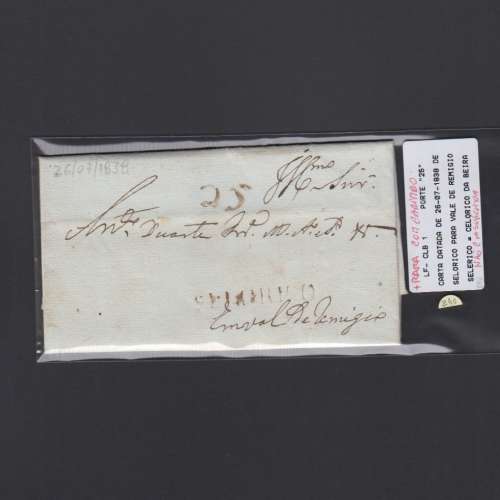 26/07/1838
25
Illmo Snr.
Anto. Duarte
SELORICO
Em val de Remigio
+ RARA COM CARIMBO
LF- CLB 1 PORTE "25"
CARTA DATADA DE 26-07-1838 DE
SELORICO PARA VALE DE REMIGIO
SELERICO = CELORICO DA BEIRA
240